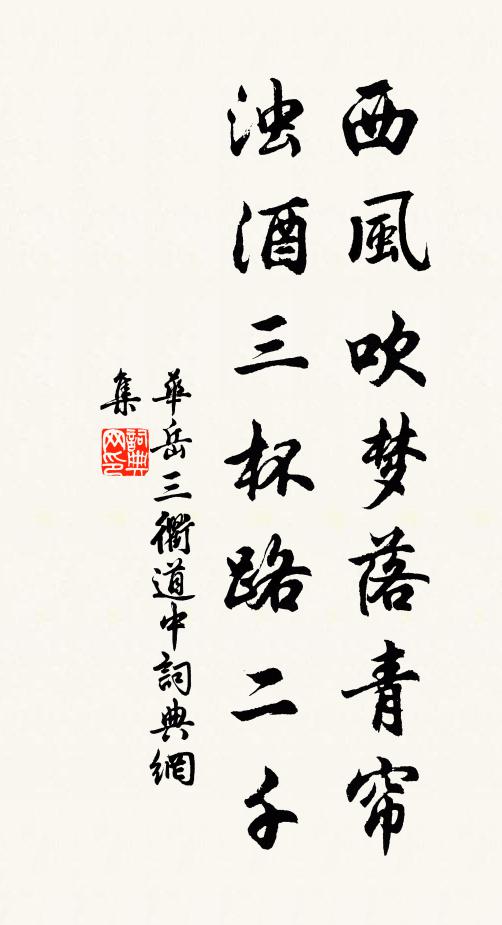 西風吹梦落青帘
浊酒三杯路二千
華岳三衢道中詞典網
集
詞典
网印